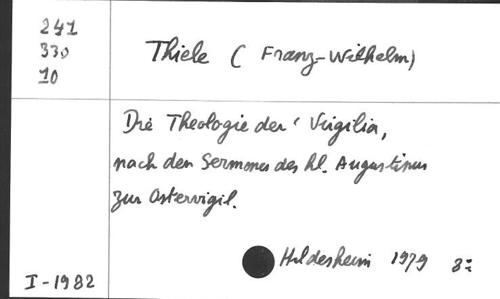 241
330
10
Thiele ( Franz-Wilhelm)
Die Theologie der 'Vigilia,
nach den Sermones des hl. Augustinus
zur Ostervigil.
Hildesheim 1979 8:
I-1982